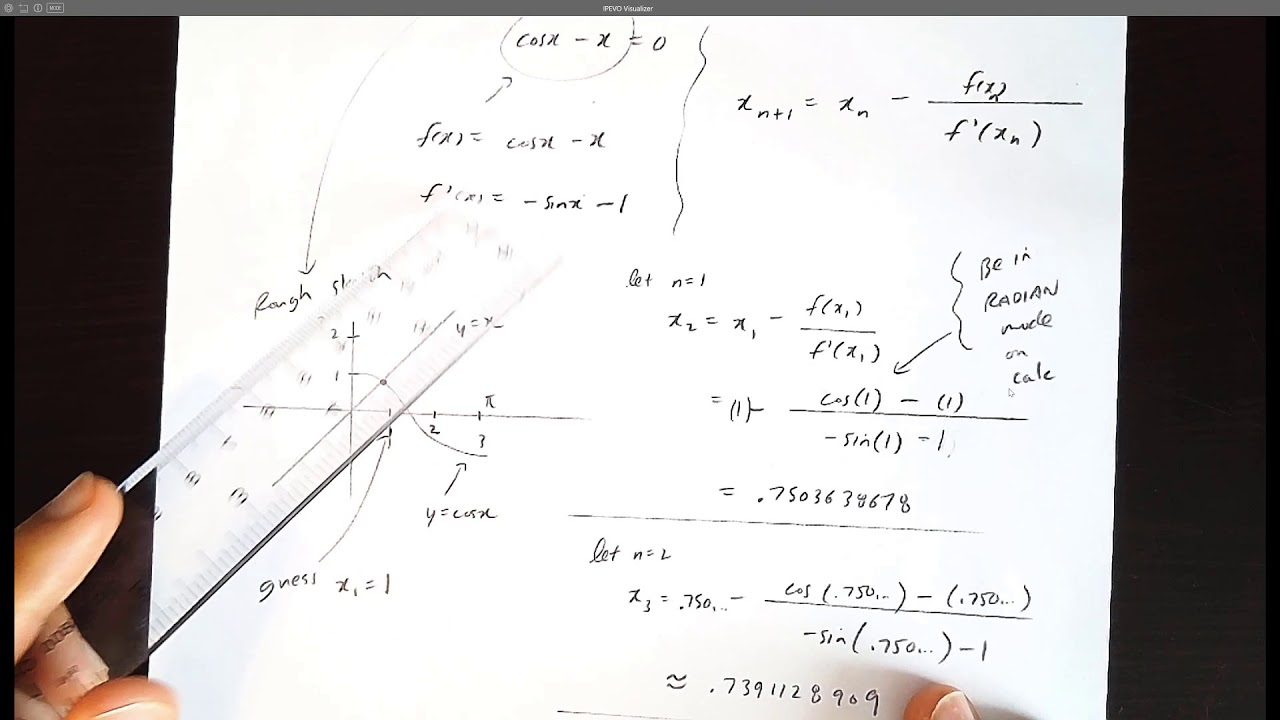 IPEVO Visualizer
cosx - x = 0
f(x) = cosx - x
f'(x) = -sinx - 1
x_{n+1} = x_n - f(x_n) / f'(x_n)
Rough sketch
2
1
y=x
1
2
3
π
y=cosx
guess x_1 = 1
let n=1
x_2 = x_1 - f(x_1) / f'(x_1)
= (1) - cos(1) - (1) / -sin(1) - 1
= .7503638678
BE in
RADIAN
mode
on
calc
let n=2
x_3 = .750... - cos(.750...) - (.750...) / -sin(.750...) - 1
≈ .7391128909